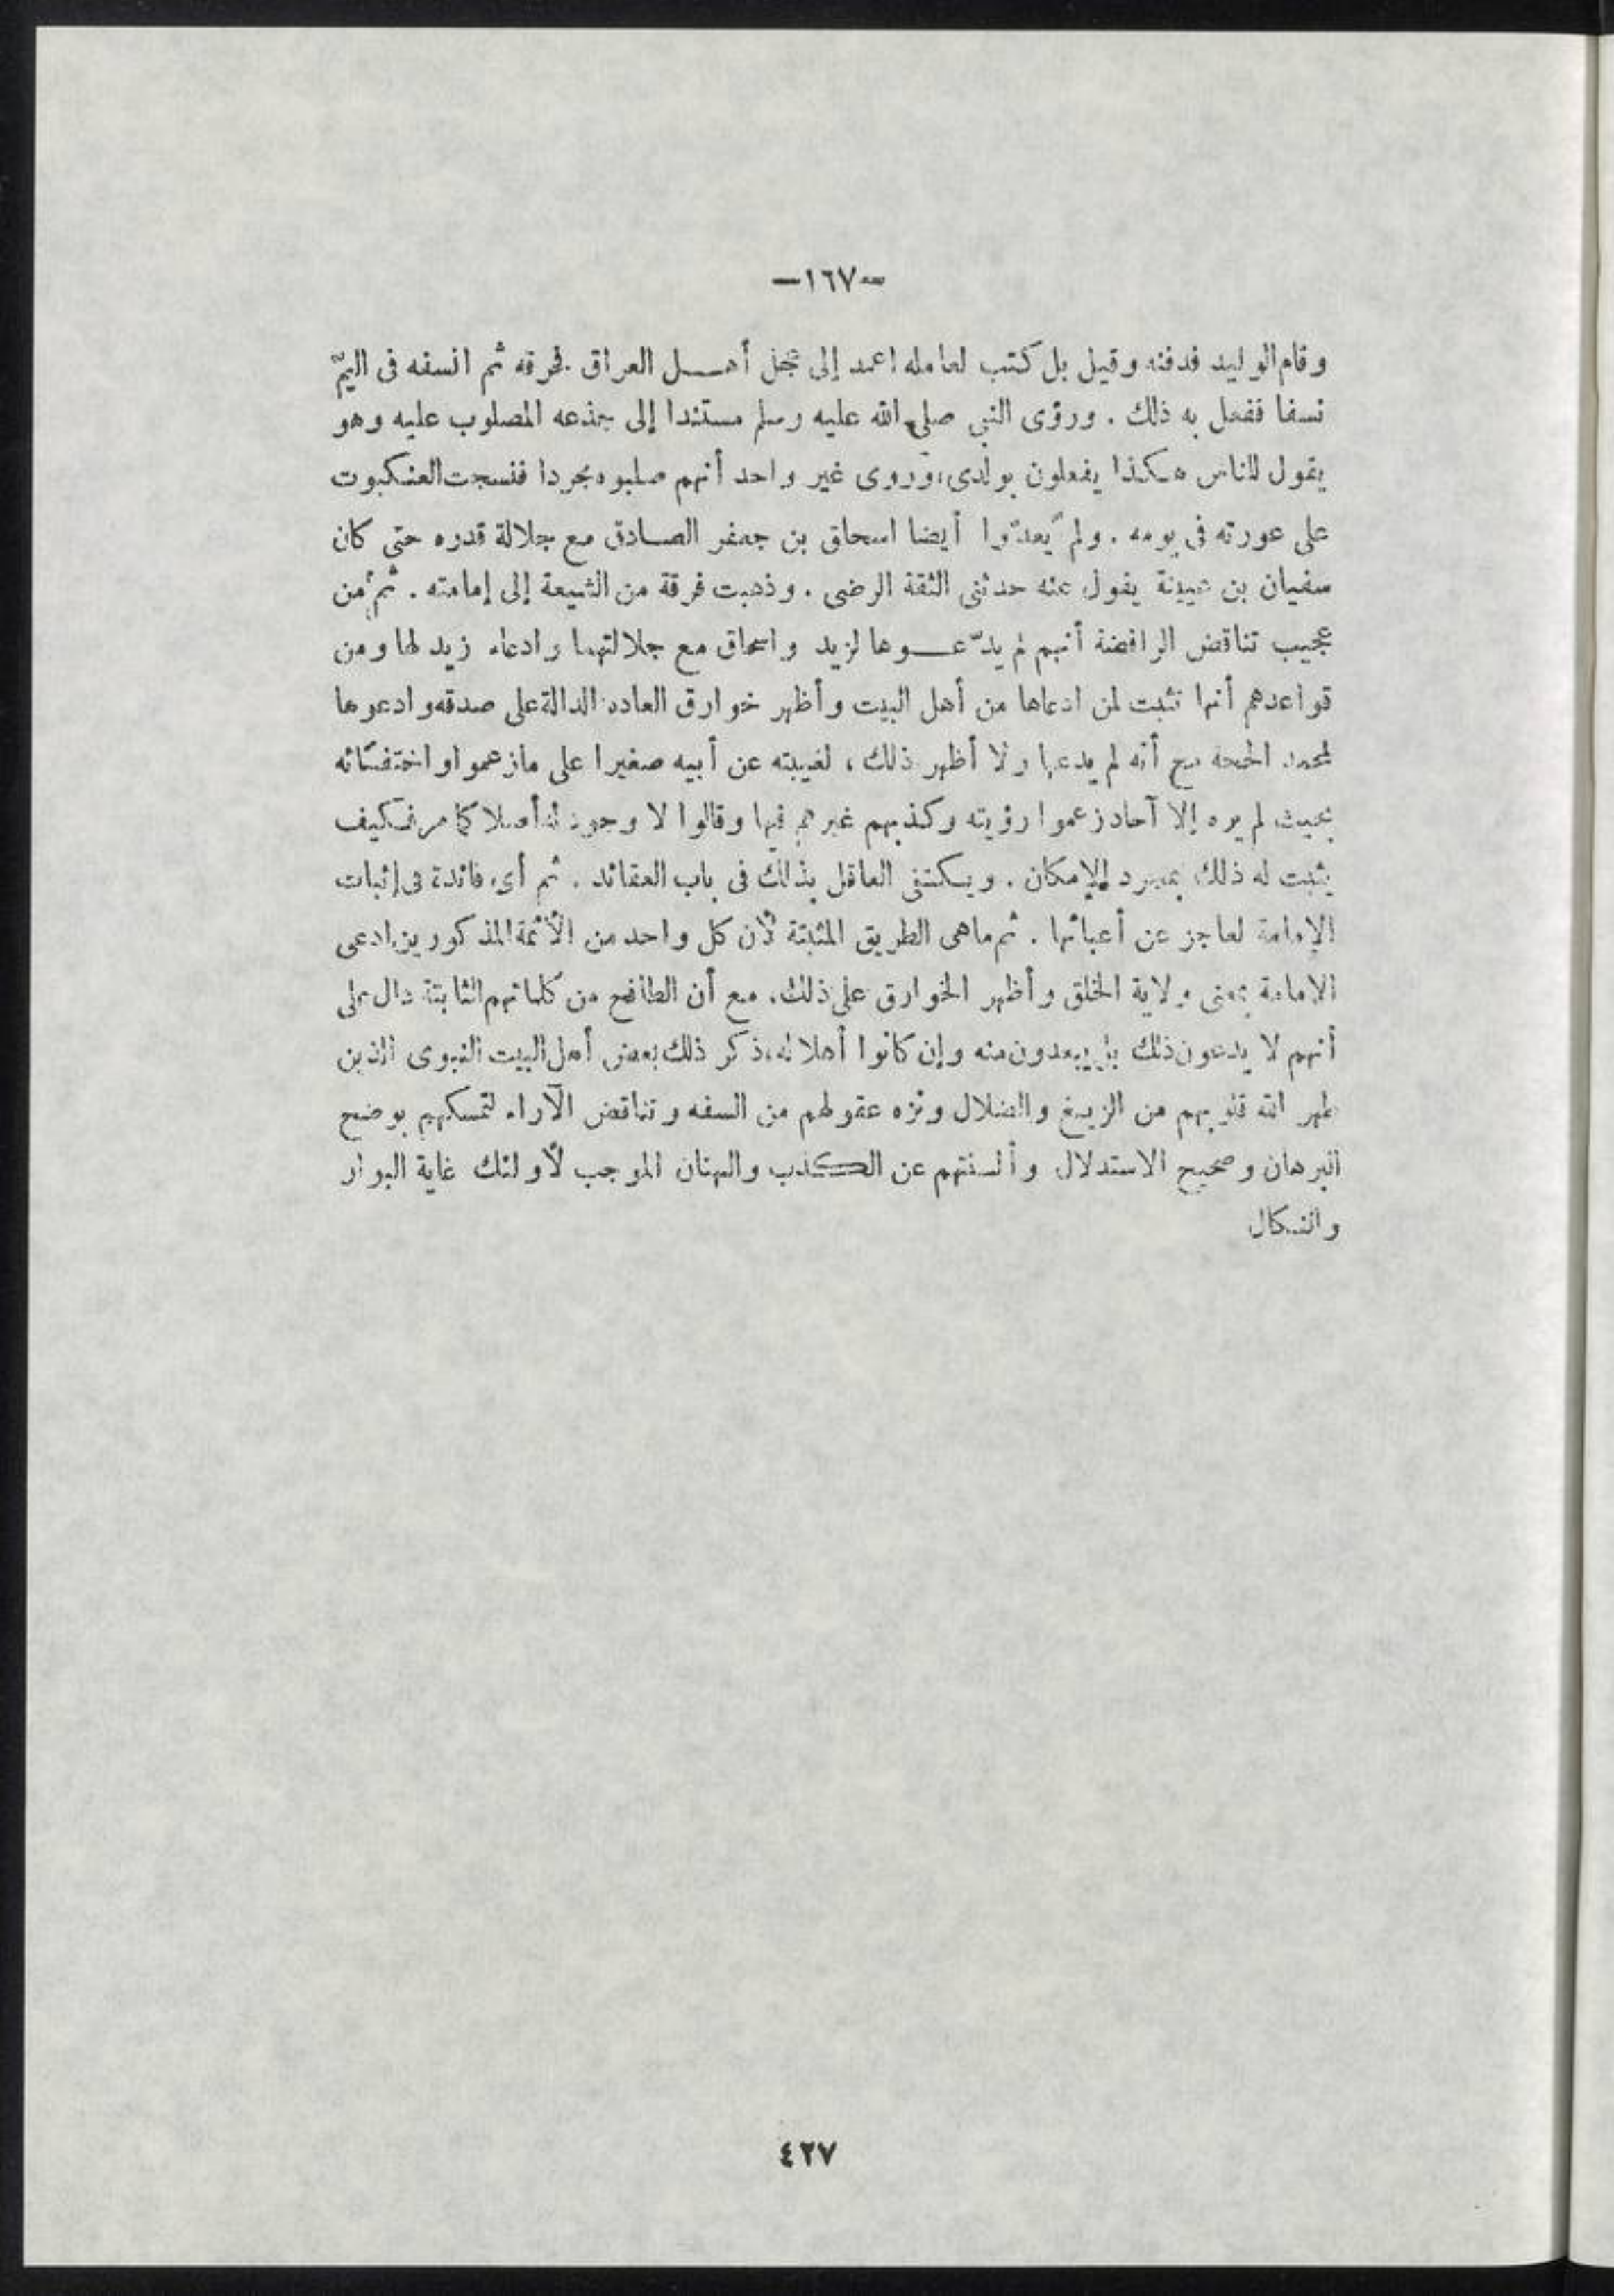 —١٦٧—
وقام الوليد فدفنه وقيل بل كتب لعامله اعمد إلى عجل أهـــل العراق فحرقه ثم انسفه فى اليمّ
نسفا ففعل به ذلك . ورؤى النبى صلى الله عليه وسلم مستندا إلى جذعه المصلوب عليه وهو
يقول للناس هكذا يفعلون بولدى ، وروى غير واحد أنهم صلبوه مجردا فنسجت العنكبوت
على عورته فى يومه . ولم يعدّوا أيضا اسحاق بن جعفر الصادق مع جلالة قدره حتى كان
سفيان بن عيينة يقول عنه حدثنى الثقة الرضى . وذهبت فرقة من الشيعة إلى إمامته . ثم من
عجيب تناقض الرافضة أنهم لم يدّعـــوها لزيد واسحاق مع جلالتهما وادعاء زيد لها ومن
قواعدهم أنها تثبت لمن ادعاها من أهل البيت وأظهر خوارق العاده الدالة على صدقه وادعوها
لمحمد الحجة مع أنه لم يدعها ولا أظهر ذلك ، لغيبته عن أبيه صغيرا على مازعموا واختفائه
بحيث لم يره إلا آحاد زعموا رؤيته وكذبهم غيرهم فيها وقالوا لا وجود له أصلا كما مر فكيف
يثبت له ذلك بمجرد الإمكان . ويكتفى العاقل بذلك فى باب العقائد . ثم أى فائدة فى إثبات
الإمامة لعاجز عن أعبائها . ثم ماهى الطريق المثبتة لأن كل واحد من الأئمة المذكورين ادعى
الإمامة بمعنى ولاية الخلق وأظهر الخوارق على ذلك ، مع أن الطافح من كلماتهم الثابتة دال على
أنهم لا يدعون ذلك بل يبعدون منه وإن كانوا أهلا له ، ذكر ذلك بعض أهل البيت النبوى الذين
طهر الله قلوبهم من الزيغ والضلال ونزه عقولهم من السفه وتناقض الآراء لتمسكهم بوضح
البرهان وصحيح الاستدلال وألسنتهم عن الكذب والبهتان الموجب لأولئك غاية البوار
والنكال
٤٢٧